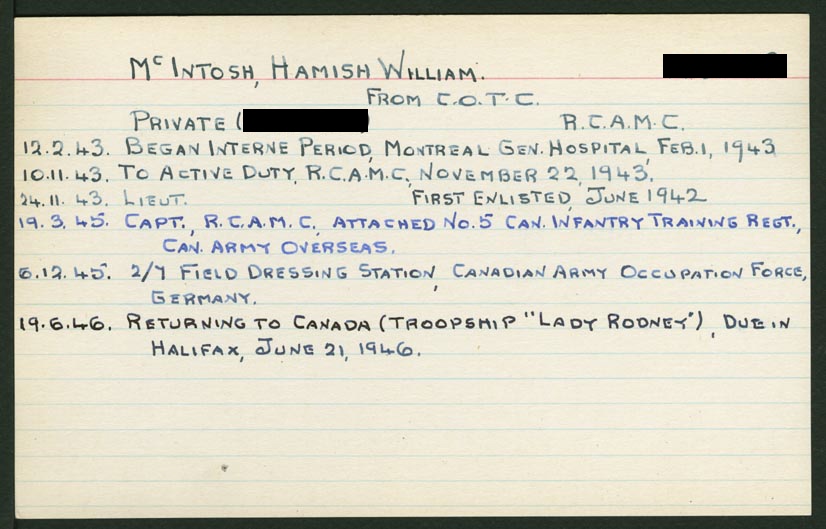 McINTOSH, HAMISH WILLIAM.
FROM C.O.T.C.
PRIVATE ( ) R.C.A.M.C.
12.2.43. BEGAN INTERNE PERIOD, MONTREAL GEN. HOSPITAL, FEB. 1, 1943
10.11.43. TO ACTIVE DUTY, R.C.A.M.C., NOVEMBER 22, 1943.
24.11.43. LIEUT. FIRST ENLISTED, JUNE 1942
19.3.45. CAPT., R.C.A.M.C., ATTACHED NO.5 CAN. INFANTRY TRAINING REGT.,
CAN. ARMY OVERSEAS.
6.12.45. 2/7 FIELD DRESSING STATION, CANADIAN ARMY OCCUPATION FORCE,
GERMANY.
19.6.46. RETURNING TO CANADA (TROOPSHIP "LADY RODNEY"), DUE IN
HALIFAX, JUNE 21, 1946.